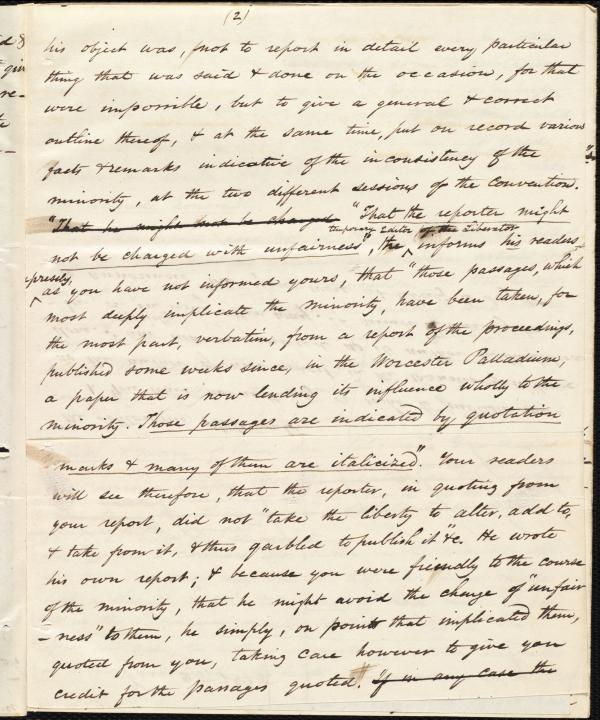 (2)
his object was, not to report in detail every particular
thing that was said & done on the occasion, for that
were impossible, but to give a general & correct
outline thereof, & at the same time, put on record various
facts & remarks indicative of the inconsistency of the
minority, at the two different sessions of the Convention.
"That he might not be charged "That the reporter might
temporary Editor of the Liberator
not be charged with unfairness", the informs his readers,
expressly,
as you have not informed yours, that "those passages, which
most deeply implicate the minority, have been taken, for
the most part, verbatim, from a report of the proceedings,
published some weeks since, in the Worcester Palladium,
a paper that is now lending its influence wholly to the
minority. Those passages are indicated by quotation
marks & many of them are italicized". Your readers
will see therefore, that the reporter, in quoting from
your report, did not "take the liberty to alter, add to,
& take from it, & thus garbled to publish it" &c. He wrote
his own report; & because you were friendly to the course
of the minority, that he might avoid the charge of "unfair
-ness" to them, he simply, on points that implicated them,
quoted from you, taking care however to give you
credit for the passages quoted. "If in any case the